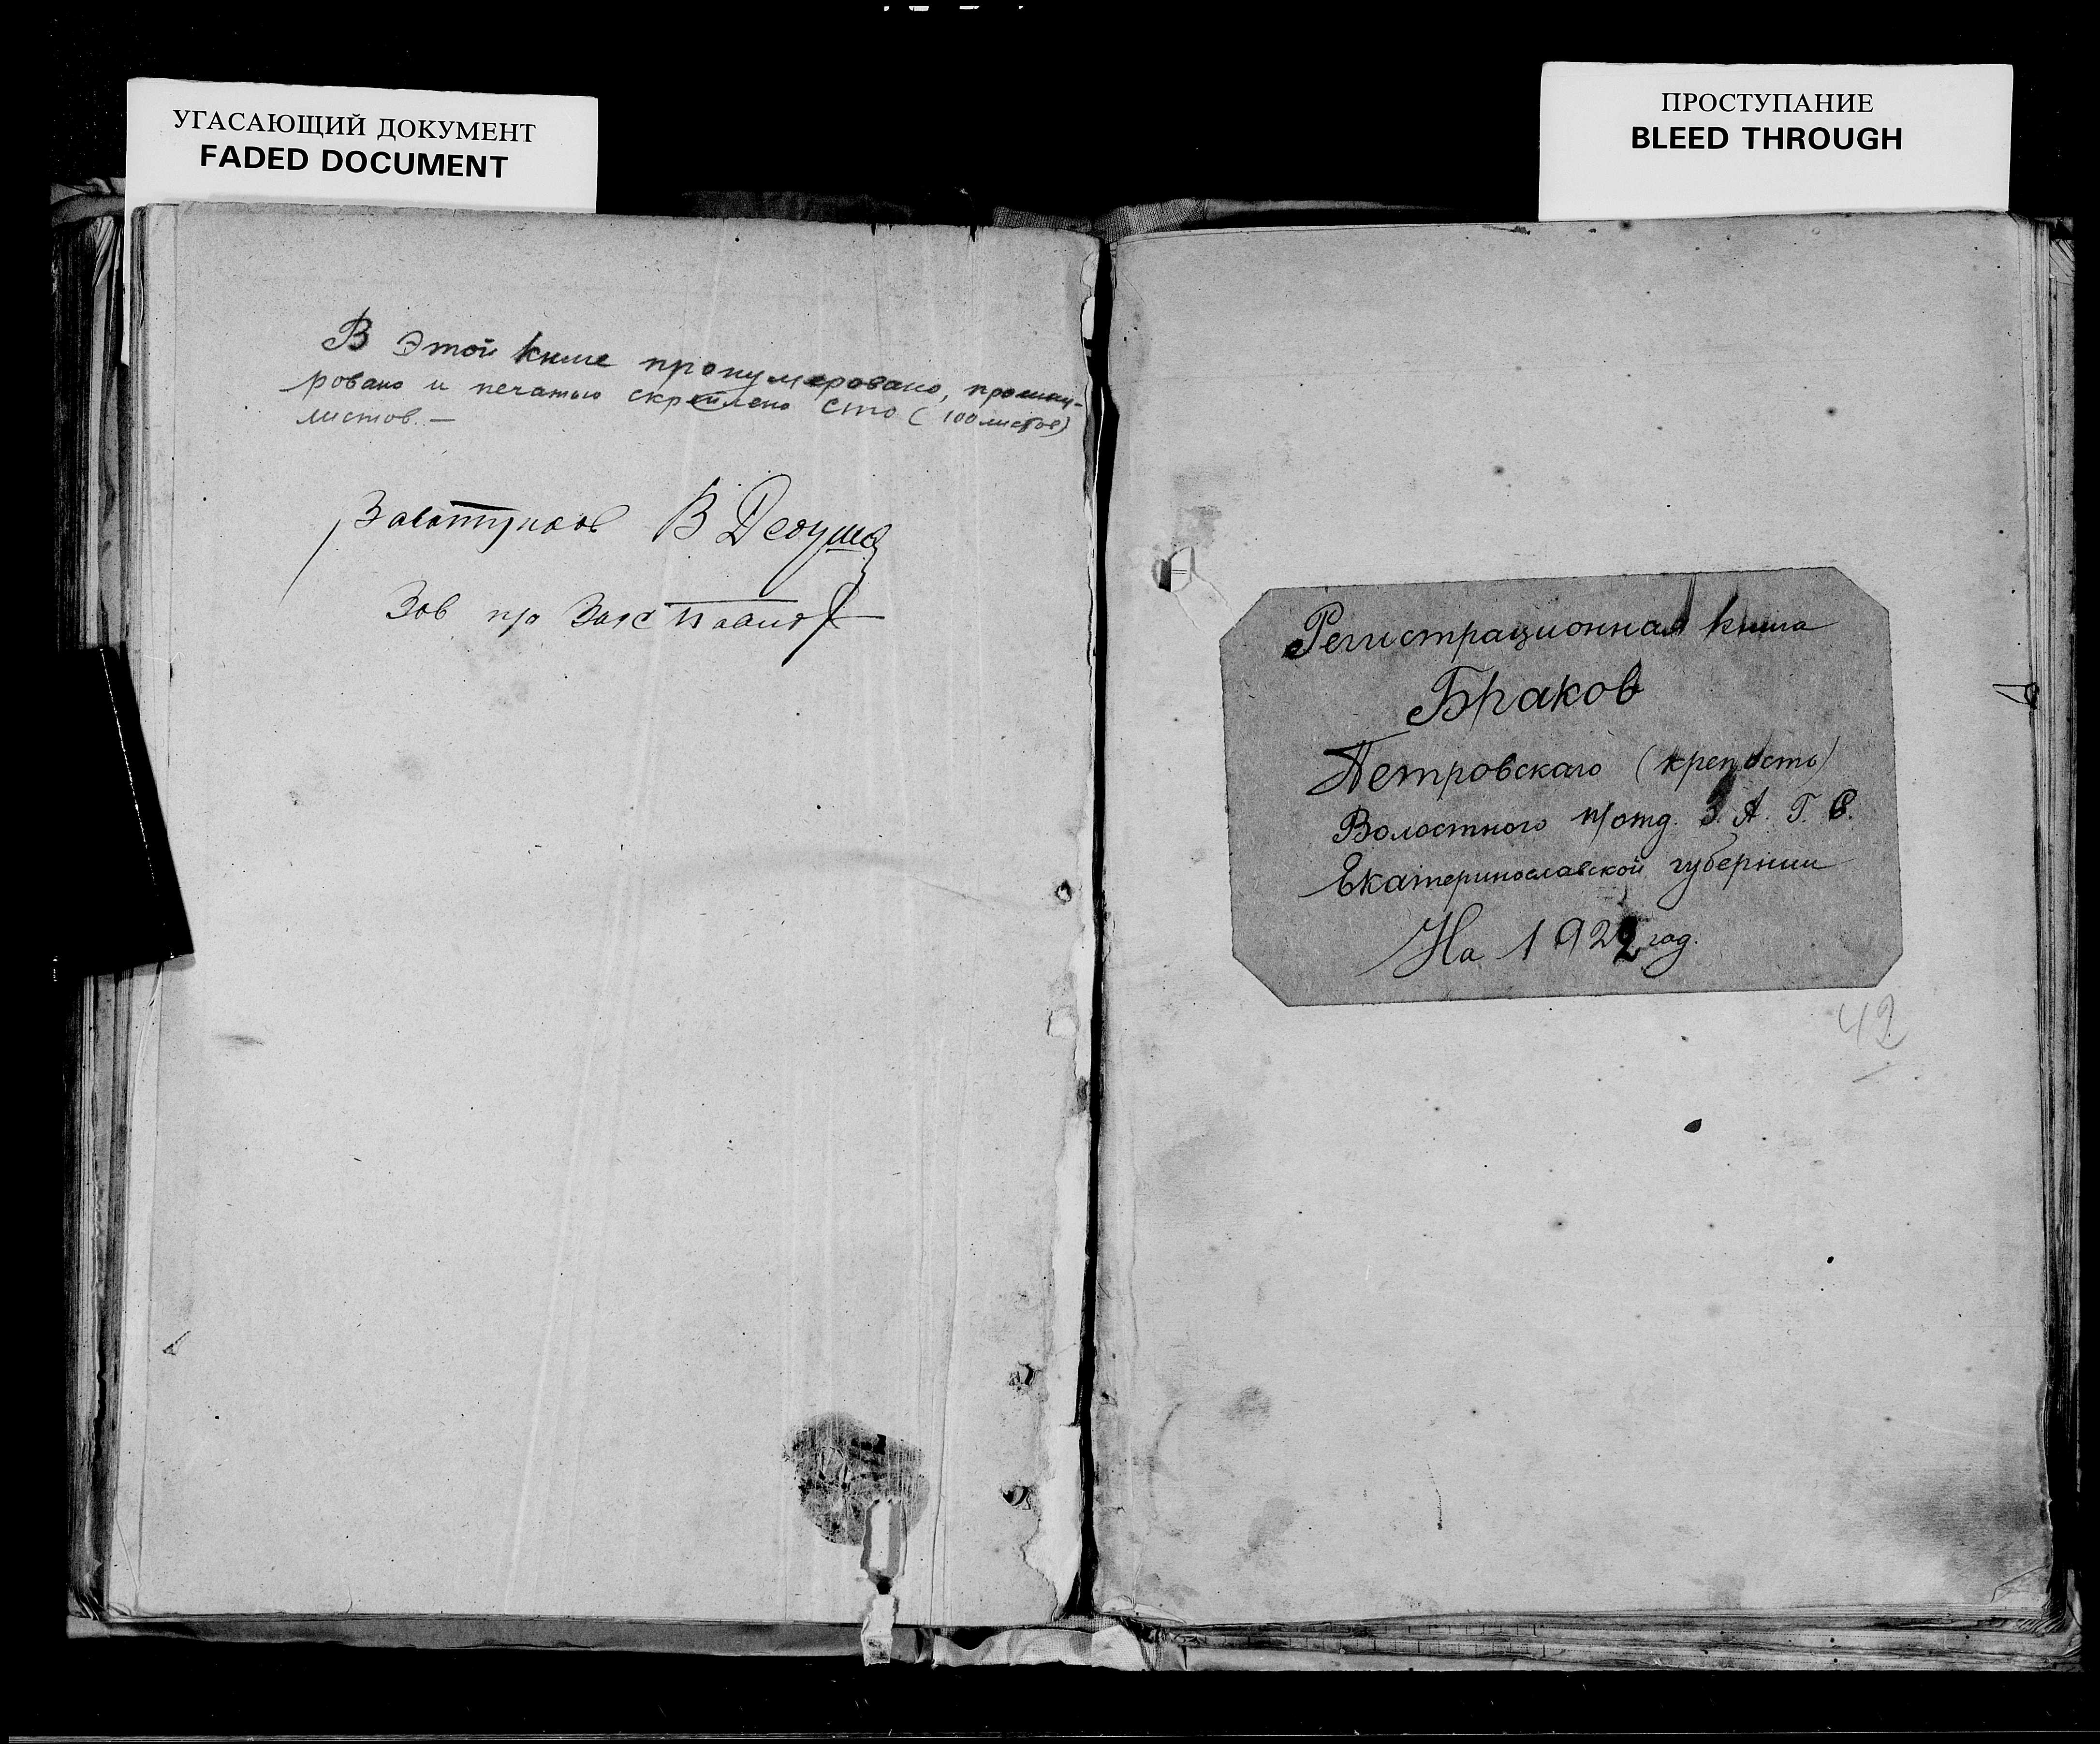 УГАСАЮЩИЙ ДОКУМЕНТ
FADED DOCUMENT
ПРОСТУПАНИЕ
BLEED THROUGH
В Этой книге пронумеровано, прошну-
ровано и печатью скреплено сто (100 листов)
листов. —
В
Зав п/о Загс
Регистрационная книга
Браков
Петровскаго (крепость)
Волостного п/отд. З. А. Г. С.
Екатеринославской губернии
На 1922 год.
42